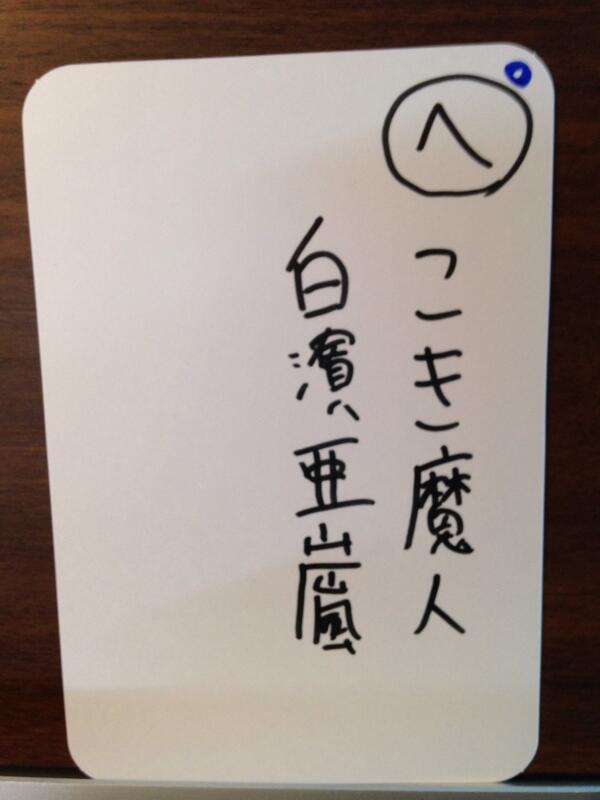 へ
こき魔人
白濱亜嵐